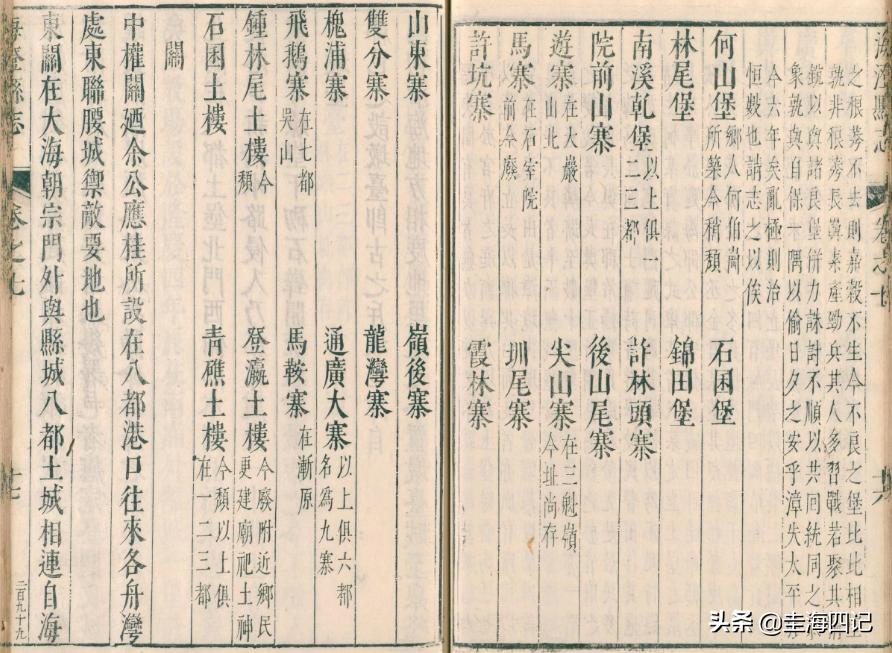 海澄縣志
卷之七
十六
之稂莠不去則嘉穀不生今不良之堡比比相
孰非稂莠長冀素產勁兵其人多習戰若聚其
鋭以與諸良堡併力誅討不順以共回統同之
象孰與自保一隅以偷日夕之安乎漳失太平
今六年矣亂極則治
恒數也請志之以俟
何山堡 鄉人何伯崗所築今稍頹 石囷堡
林尾堡 錦田堡
南溪乾堡 以上俱一二三都 許林頭寨
院前山寨 後山尾寨
遊寨 在大巖山北 尖山寨 在三魁嶺今址尚存
馬寨 在石室院前今廢 圳尾寨
許坑寨 霞林寨
山東寨 嶺後寨
雙分寨 龍灣寨
槐浦寨 通廣大寨 以上俱六都名為九寨
飛鵝寨 在七都吳山 馬鞍寨 在漸原
鍾林尾土樓 今頹 登瀛土樓 今廢附近鄉民更建廟祀土神
石囷土樓 青礁土樓 今頹以上俱在一二三都
關
中權關廼余公應桂所設在八都港口往來各舟灣
處東聯腰城禦敵要地也
東關在大海朝宗門外與縣城八都土城相連自海
海澄縣志
卷之七
十七
二百九十九
头条 @圭海四记